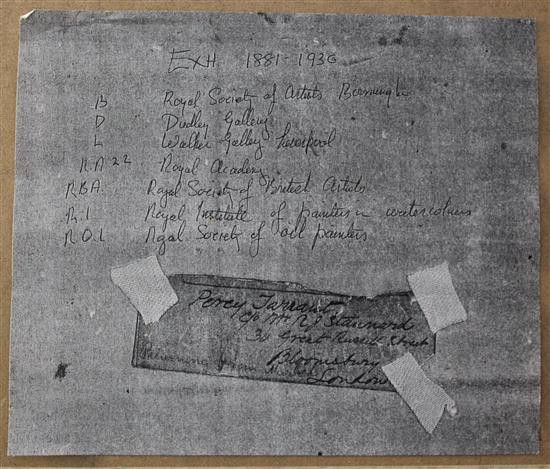 EXH 1881-1936
B Royal Society of Artists Birmingham
D Dudley Gallery
L Walker Gallery Liverpool
RA 22 Royal Academy
RBA Royal Society of British Artists
R.I Royal Institute of painters in watercolours
R.O.I Royal Society of oil painters
Percy Tarrant
c/o Mr R J Stannard
Great Russell Street
Bloomsbury
Returning from
London